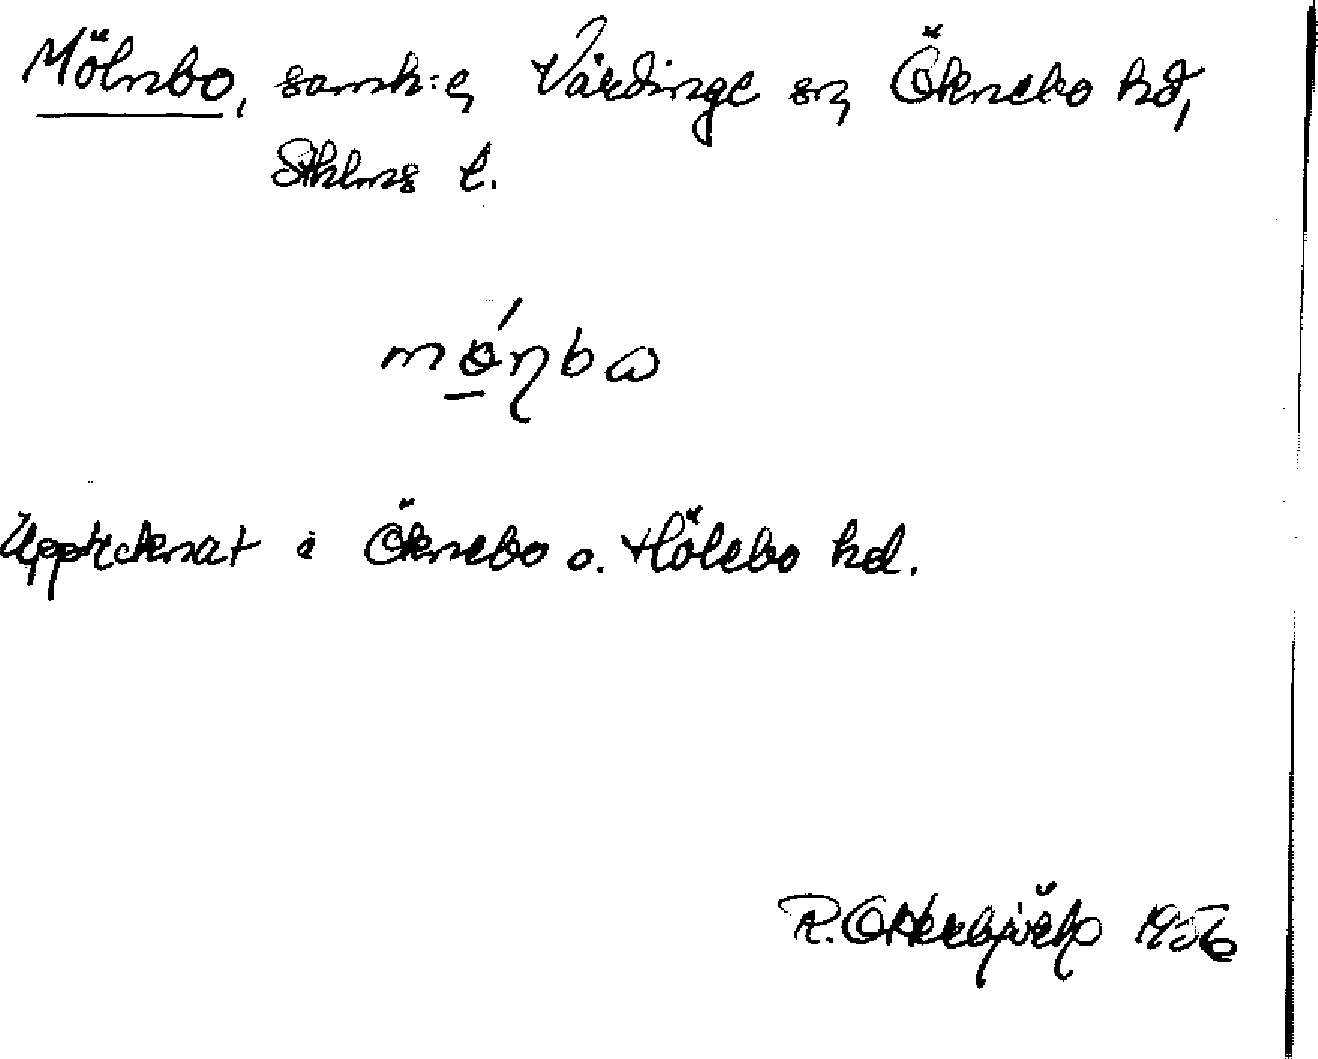 Mölnbo, samh:e, Vårdinge sn, Öknebo hd,
Sthlms l.
Upptecknat i Öknebo o. Hölebo hd.
R. Otterbjörk 1956